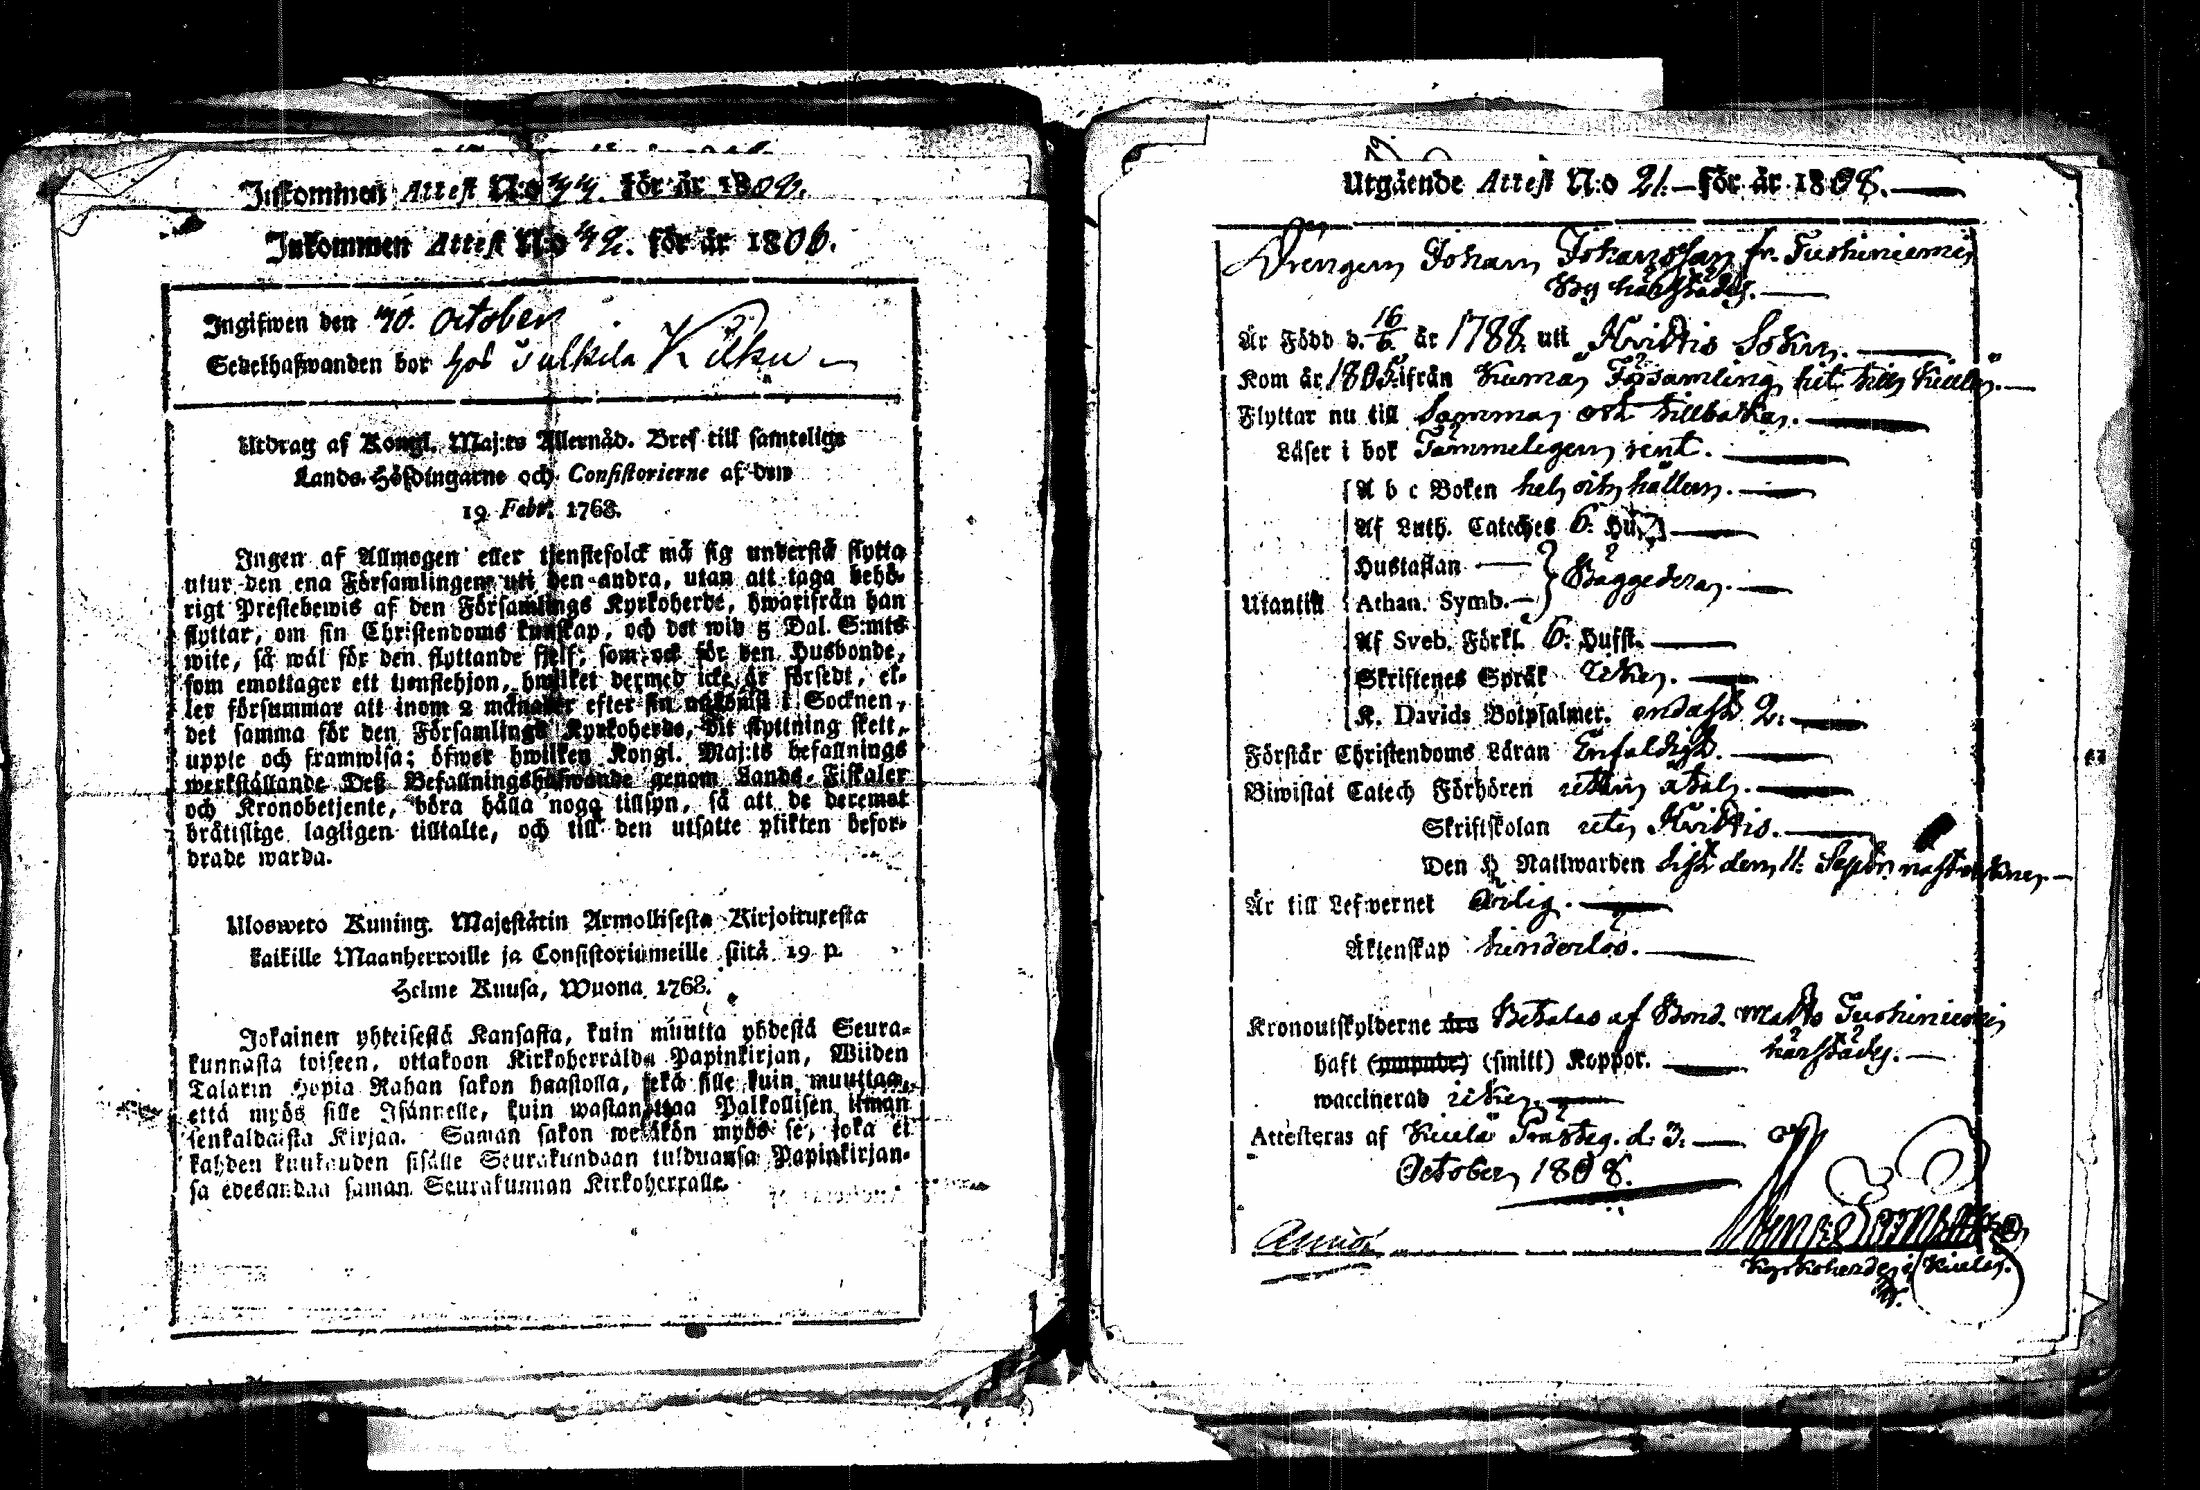 Inkommen Attest N:o 44. för år 1808.
Inkommen Attest N:o 42. för år 1806.
Ingifwen den 40. October
Sedelhafwanden bor hos Kulku
Utdrag af Kongl. Maj:ts Allernåd. Bref till samtelige
Lands-Höfdingarne och Consistorierne af den
19 Febr. 1768.
Ingen af Allmogen eller tjenstefolck må sig understå flytta
utur den ena Församlingen uti den andra, utan att taga behö-
rigt Prestebewis af den Församlings Kyrkoherde, hwarifrån han
flyttar, om sin Christendoms kunskap, och det wid 5 Dal. S:mts
wite, så wäl för den flyttande sjelf, som ock för den Husbonde,
som emottager ett tjenstehjon, hwilket dermed icke är försedt, el-
ler försummar att inom 2 månader efter sin ankomst i Socknen,
det samma för den Församlings Kyrkoherde, dit flyttning skett,
uppte och framwisa; öfwer hwilken Kongl. Maj:ts befallnings
werkställande Deß Befallningshafwande genom Lands-Fiskaler
och Kronobetjente, böra hålla noga tillsyn, så att de deremot
bråtislige lagligen tilltalte, och till den utsatte plikten befor-
drade warda.
Ulosweto Kuning. Majestätin Armollisesta Kirjoituxesta
kaikille Maanherroille ja Consistoriumeille siitä 19 p.
Helme Kuusa, Wuona 1768.
Jokainen yhteisestä Kansasta, kuin muutta yhdestä Seura-
kunnasta toiseen, ottakoon Kirkoherralda Papinkirjan, Wiiden
Talarin Hopia Rahan sakon haastolla, sekä sille kuin muuttaa,
että myös sille Isännelle, kuin wastanottaa Palkollisen ilman
senkaldaista Kirjaa. Saman sakon wetäkön myös se, joka ei
kahden kuukauden sisälle Seurakundaan tulduansa Papinkirjan-
sa edesandaa saman Seurakunnan Kirkoherralle.
Utgående Attest N:o 21. för år 1808.
Drengen Johan Johansson fr. Tuohiniemi
By härstädes.
Är Född d. 16/6. år 1788. uti Hvittis Sokn.
Kom år 1805. ifrån Kumo Församling hit till Kiulo.
Flyttar nu till Samma ort tillbaka.
Läser i bok Tämmeligen rent.
A b c Boken hel och hållen.
Af Luth. Cateches 6. Hu
Hustaflan
Athan. Symb. Bäggedera.
Utantill
Af Sveb. Förkl. 6. Hufst.
Skriftenes Språk icke.
K. Davids Botpsalmer. endast 2.
Förstår Christendoms Läran Enfaldigt.
Biwistat Catech Förhören
Skriftskolan uti Hvittis.
Den H Nattwarden sist den 11. Septbr.
Är till Lefwernet ärlig.
Äktenskap hinderlös.
Kronoutskylderne års Betalas af Bond. Matts Tuohiniemi
härstädes.
haft (ympade) (smitt) Koppor.
waccinerad icke.
Attesteras af Kiulo Prästeg. d. 3.
October 1808.
Kyrkoherde i Kiulo.